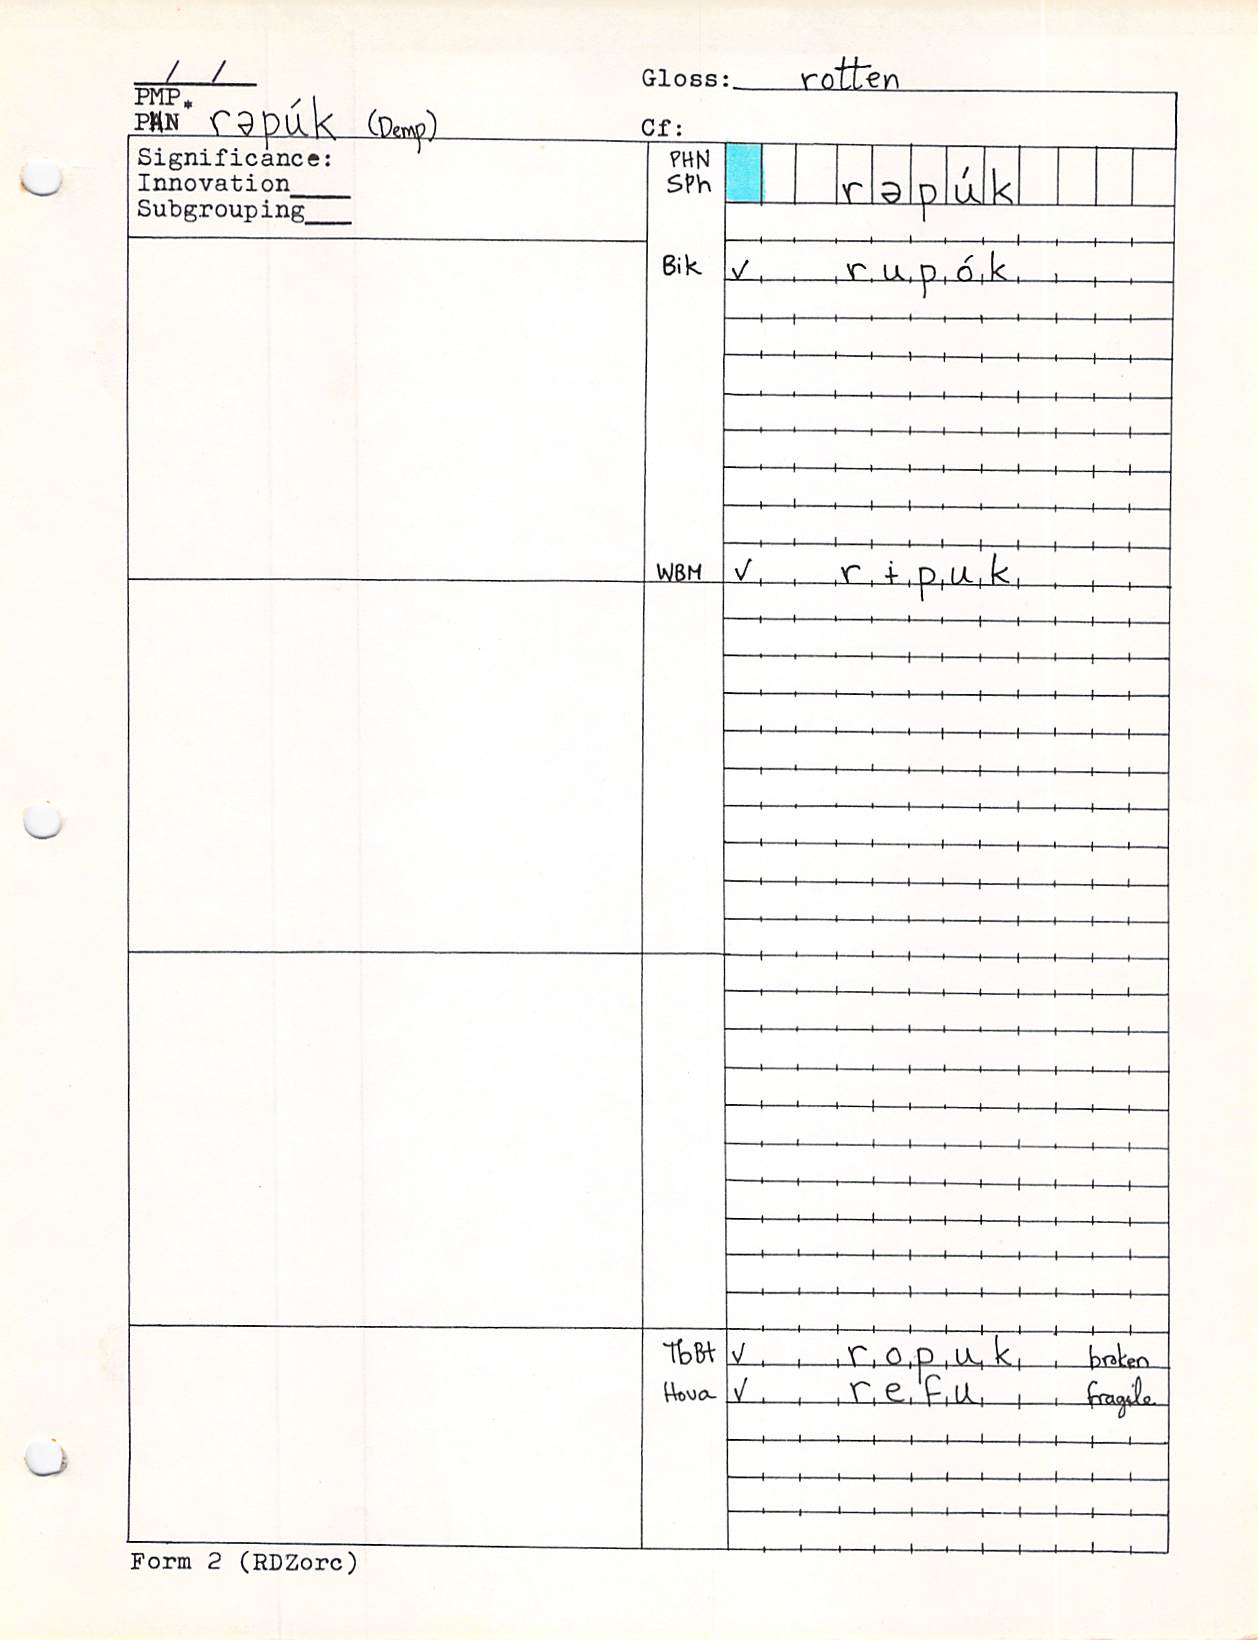 / /
Gloss: rotten
PMP
PHN * rəpúk (Demp)
Cf:
Significance:
Innovation
Subgrouping
PHN
SPh rəpúk
Bik ✓ rupók
WBM ✓ rɨpuk
TbBt ✓ ropuk broken
Hova ✓ refu fragile
Form 2 (RDZorc)